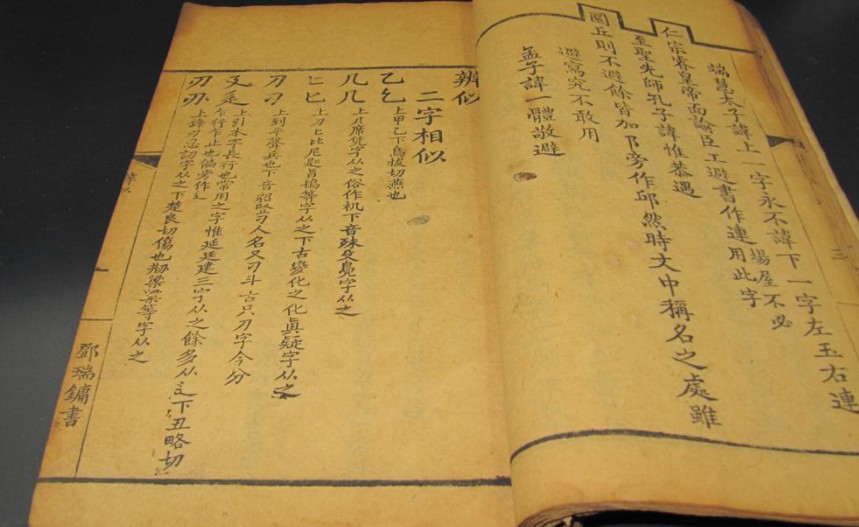 端慧太子諱上一字永不諱下一字左玉右連
仁宗睿皇帝面諭臣工避書作連
場屋不必
用此字
至聖先師孔子諱惟恭遇
圜丘則不避餘皆加阝旁作邱然時文中稱名之處雖
避寫究不敢用
孟子諱一體敬避
三
辨似
二字相似
乙𠃉 上甲乙下烏拔切燕也
几𠘧 上几席凭字从之俗作机下音殊殳鳧字从之
匕𠤎 上刀匕比尼匙旨鴇等字从之下古變化之化眞疑字从之
刀刁 上到平聲兵也下音貂豎刁人名又刁斗古只刀字今分
廴辶 上引本字長行也常用之字惟延廷建三字从之餘多从辶下丑略切
乍行乍止也偏旁作辶
刃刅 上鋒刃忍訒字从之下楚良切傷也剏梁粱等字从之
辨似
一
鄧瑞鏞書